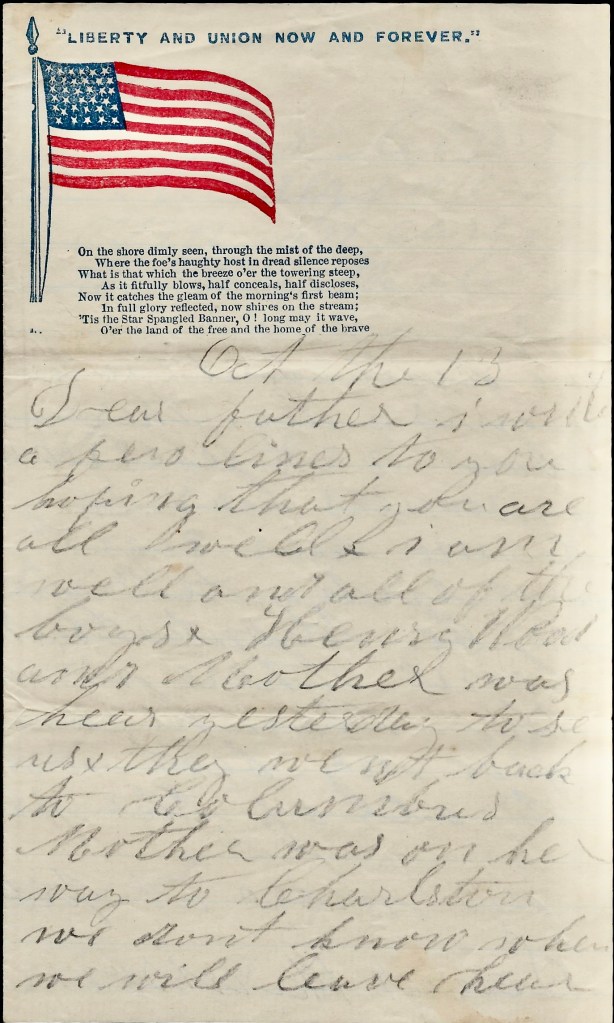 "LIBERTY AND UNION NOW AND FOREVER."
On the shore dimly seen, through the mist of the deep,
Where the foe's haughty host in dread silence reposes
What is that which the breeze o'er the towering steep,
As it fitfully blows, half conceals, half discloses,
Now it catches the gleam of the morning's first beam;
In full glory reflected, now shires on the stream;
'Tis the Star Spangled Banner, O! long may it wave,
O'er the land of the free and the home of the brave
Oct the 13
Dear father i will
a few lines to you
hoping that you are
all well & i am
well and all of the
boys & Henry
and Mother was
hear yesterday to se
us & they went back
to Columbus
Mother was on he
way to Charlston
we dont know when
we will leave hear